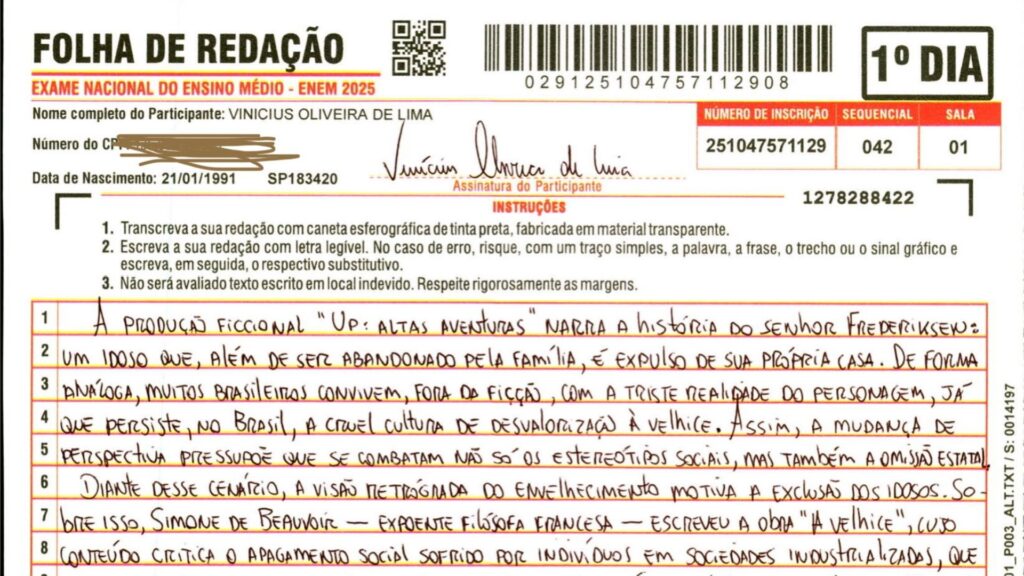 FOLHA DE REDAÇÃO
EXAME NACIONAL DO ENSINO MÉDIO - ENEM 2025
029125104757112908
1º DIA
Nome completo do Participante: VINICIUS OLIVEIRA DE LIMA
Número do CPF
Data de Nascimento: 21/01/1991 SP183420
Vinícius Oliveira de Lima
Assinatura do Participante
NÚMERO DE INSCRIÇÃO SEQUENCIAL SALA
251047571129 042 01
1278288422
INSTRUÇÕES
1. Transcreva a sua redação com caneta esferográfica de tinta preta, fabricada em material transparente.
2. Escreva a sua redação com letra legível. No caso de erro, risque, com um traço simples, a palavra, a frase, o trecho ou o sinal gráfico e
escreva, em seguida, o respectivo substitutivo.
3. Não será avaliado texto escrito em local indevido. Respeite rigorosamente as margens.
1 A PRODUÇÃO FICCIONAL "UP: ALTAS AVENTURAS" NARRA A história DO SENHOR FREDERIKSEN:
2 UM IDOSO QUE, ALÉM DE SER ABANDONADO PELA FAMÍLIA, É EXPULSO DE SUA PRÓPRIA CASA. DE FORMA
3 ANÁLOGA, MUITOS BRASILEIROS CONVIVEM, FORA DA FICÇÃO, COM A TRISTE REALIDADE DO PERSONAGEM, JÁ
4 QUE PERSISTE, NO BRASIL, A CRUEL CULTURA DE DESVALORIZAÇÃO À VELHICE. ASSIM, A MUDANÇA DE
5 PERSPECTIVA PRESSUPÕE QUE SE COMBATAM NÃO SÓ OS ESTEREÓTIPOS SOCIAIS, MAS TAMBÉM A OMISSÃO ESTATAL.
6 DIANTE DESSE CENÁRIO, A VISÃO RETRÓGRADA DO ENVELHECIMENTO MOTIVA A EXCLUSÃO DOS IDOSOS. SO-
7 BRE ISSO, SIMONE DE BEAUVOIR — EXPOENTE FILÓSOFA FRANCESA — ESCREVEU A OBRA "A VELHICE", CUJO
8 CONTEÚDO CRITICA O APAGAMENTO SOCIAL SOFRIDO POR INDIVÍDUOS EM SOCIEDADES INDUSTRIALIZADAS, QUE
01_P003_ALT.TXT / S: 0014197